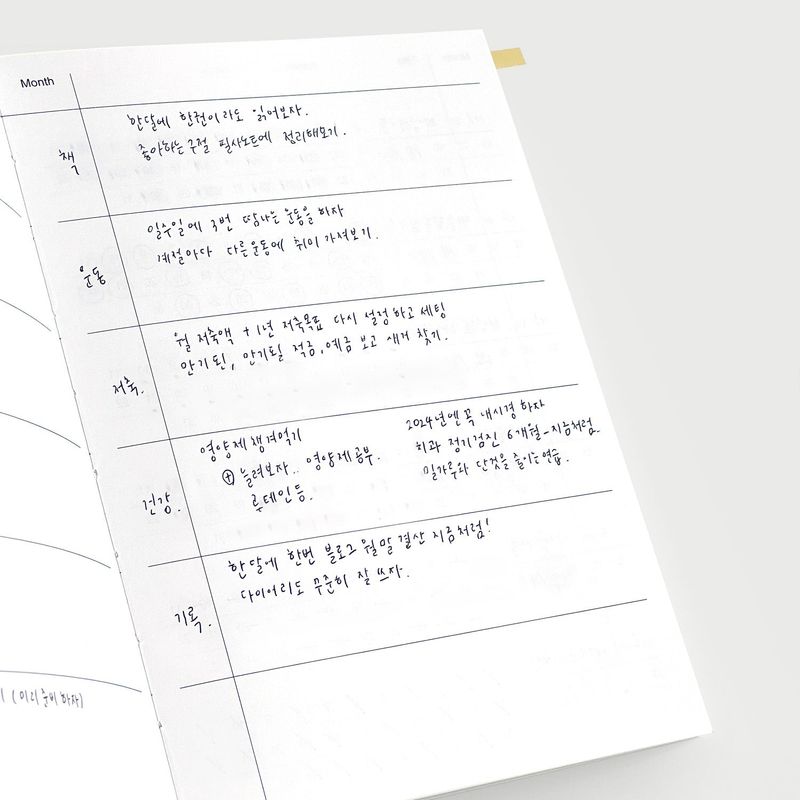 Month
책
한달에 한권이라도 읽어보자.
좋아하는 구절 필사노트에 정리해보기.
운동
일주일에 3번 땀나는 운동을 하자
계절마다 다른운동에 취미 가져보기.
저축.
월 저축액 + 1년 저축목표 다시 설정하고 세팅
만기된, 만기될 적금, 예금 보고 새거 찾기.
건강.
영양제 챙겨먹기
⊕ 늘려보자.. 영양제 공부.
루테인 등.
2024년엔 꼭 내시경 하자
치과 정기검진 6개월 - 지금처럼
밀가루와 단것을 줄이는 연습.
기록.
한달에 한번 블로그 월말 결산 지금처럼!
다이어리도 꾸준히 잘 쓰자.
(미리 준비하자)